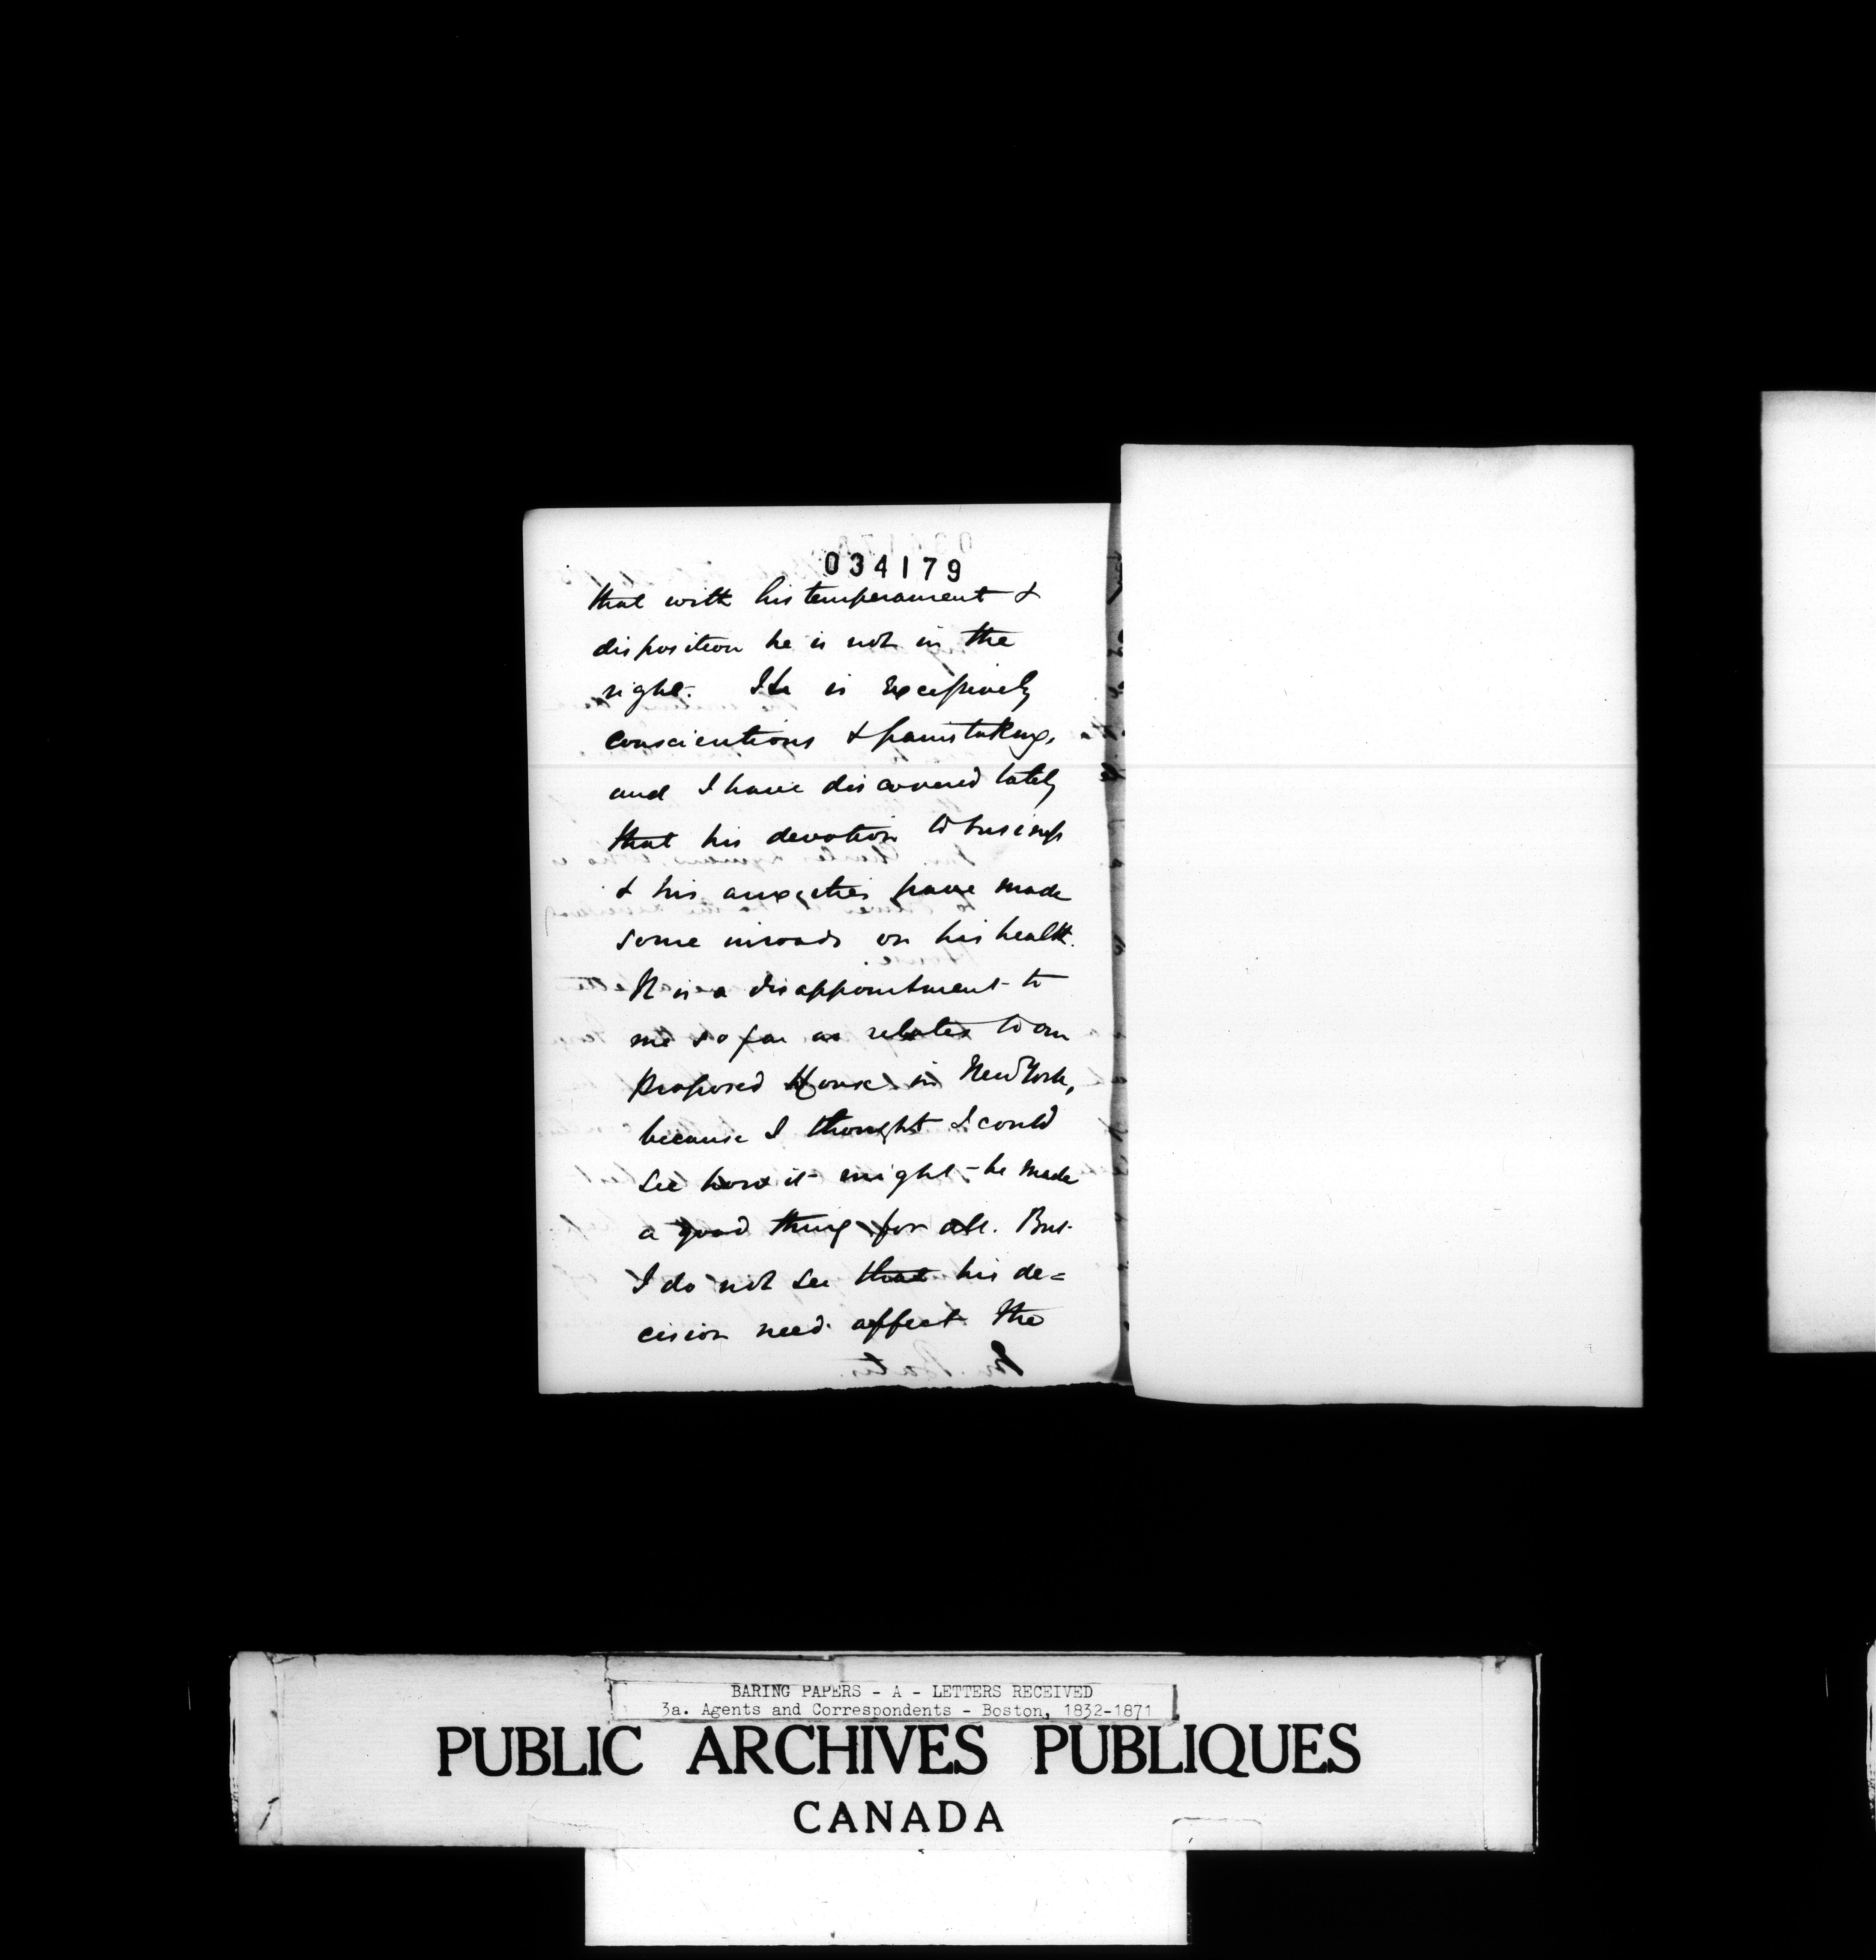 034179
that with his temperament &
disposition he is not in the
right. He is excessively
conscientious & painstaking,
and I have discovered lately
that his devotion to business
& his anxieties have made
some inroads on his health.
It is a disappointment to
me so far as relates to our
proposed House in New York,
because I thought I could
see how it might be made
a good thing for all. But
I do not see that his de=
cision need affect the
BARING PAPERS - A - LETTERS RECEIVED
3a. Agents and Correspondents - Boston, 1832-1871
PUBLIC ARCHIVES PUBLIQUES
CANADA